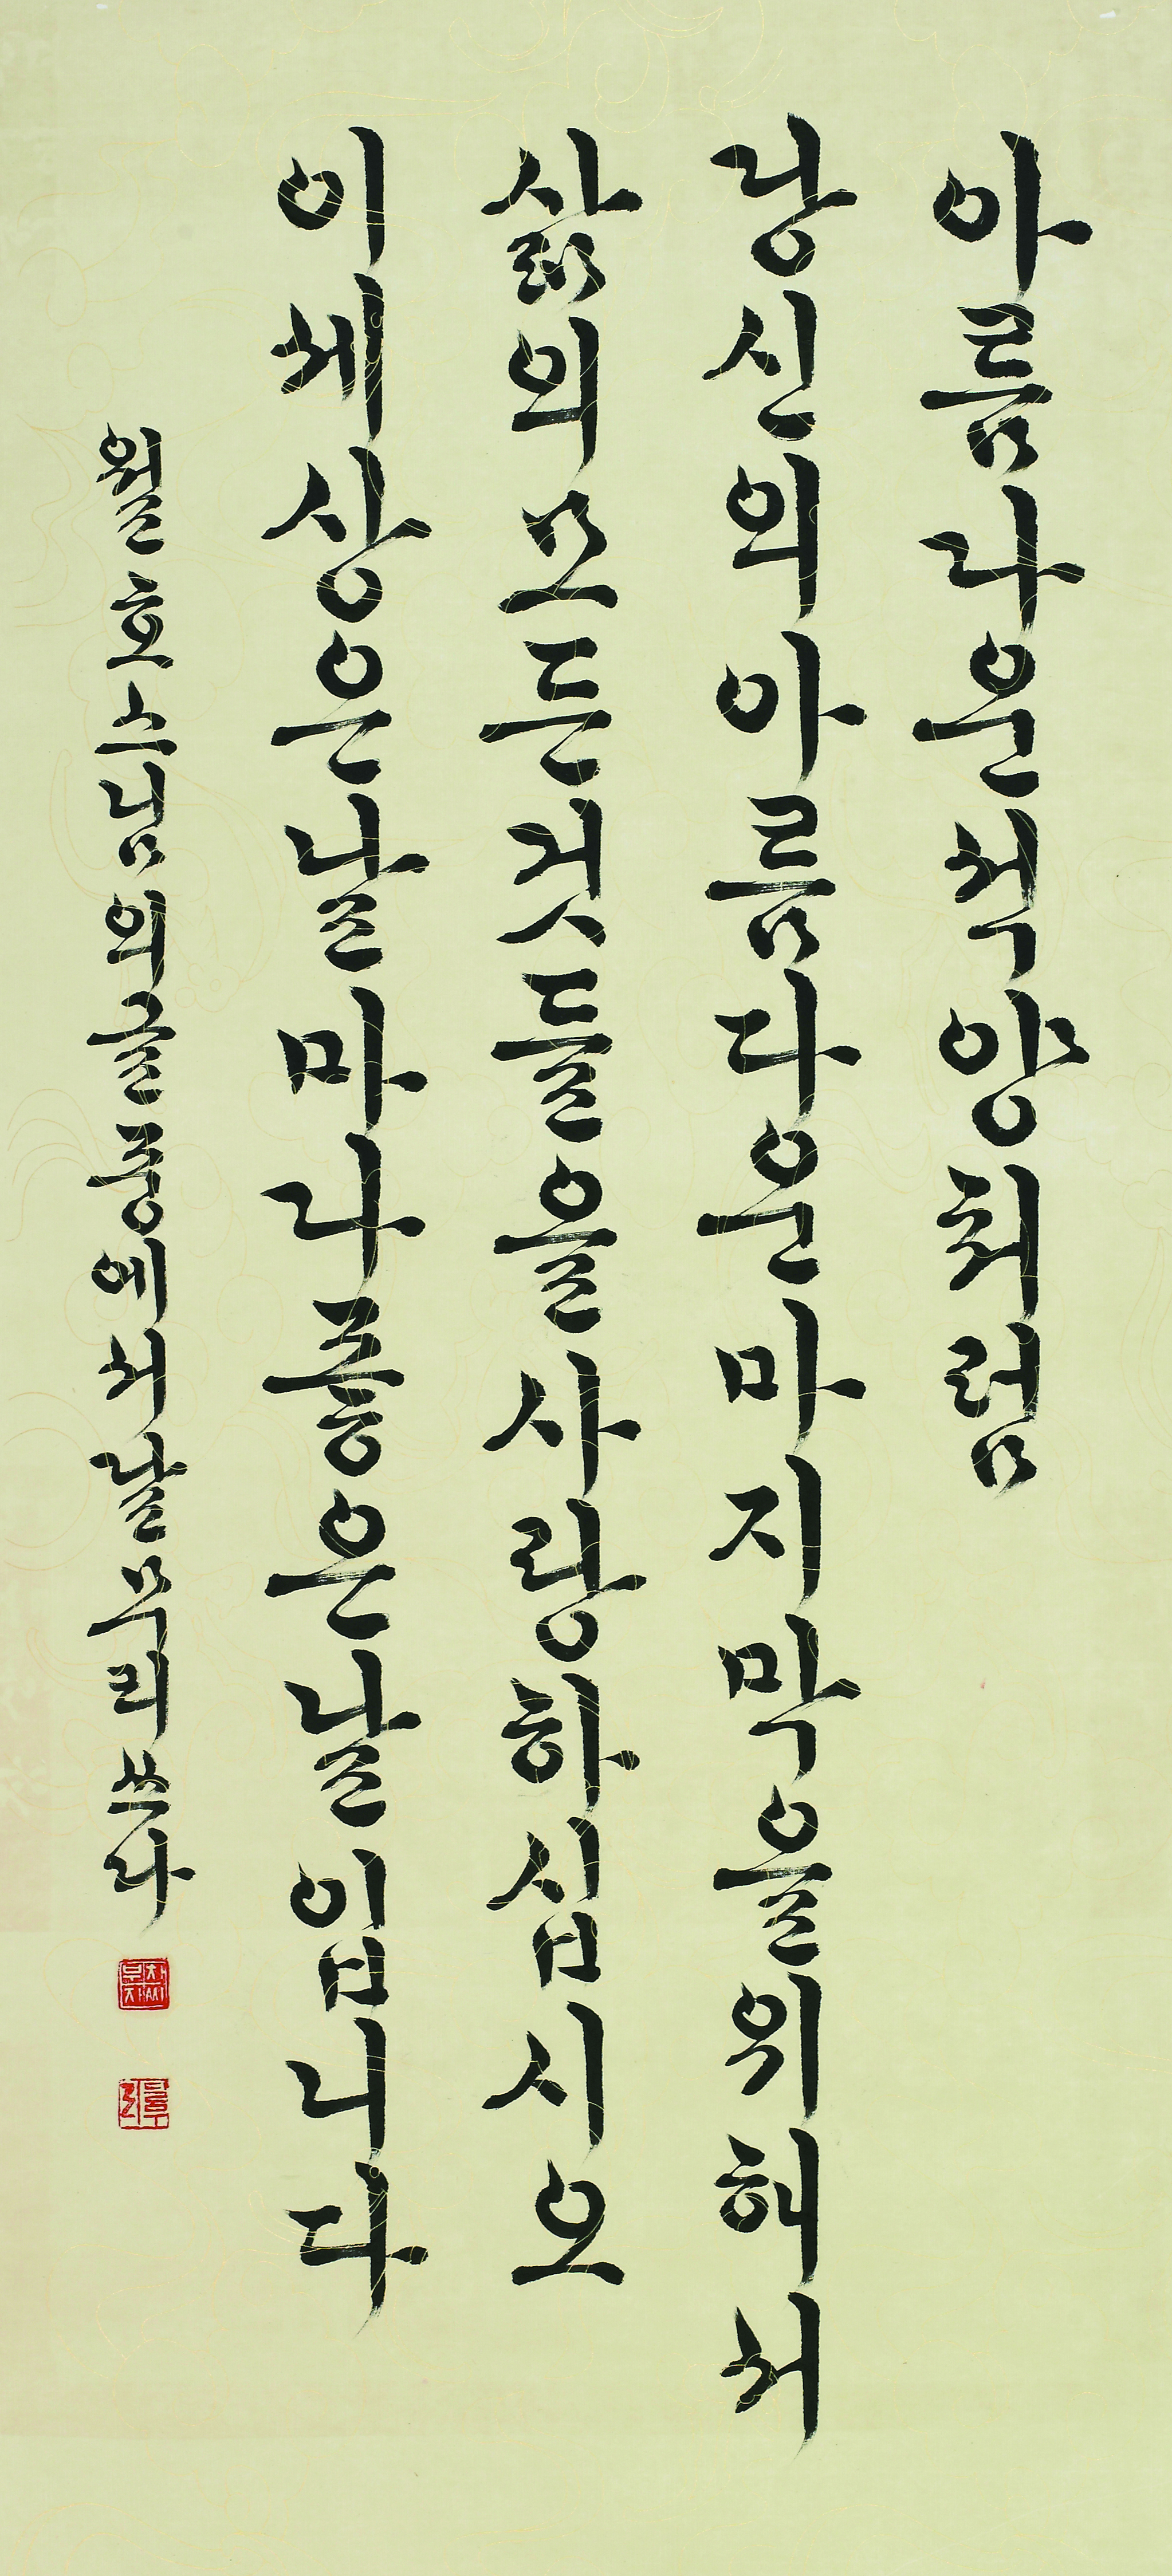 아름다운석양처럼
당신의아름다운마지막을위해서
삶의모든것들을사랑하십시오
이세상은날마다좋은날입니다
월호스님의글중에서달무리쓰다